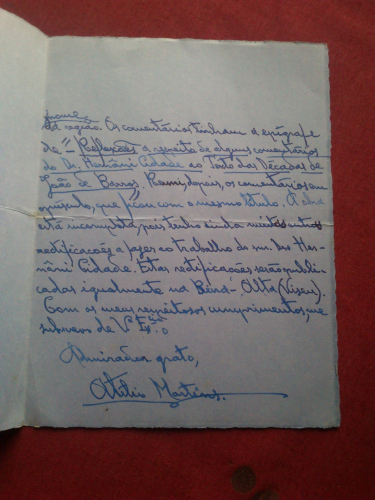 jornal
da região. Os comentários tinham a epígrafe
de "Reflexões a respeito de alguns comentários
do Dr. Hernâni Cidade ao Texto das Décadas de
João de Barros. Reuni, depois, os comentários em
opúsculo, que ficou com o mesmo título. A obra
está incompleta, pois tenho ainda muitas outras
rectificações a fazer ao trabalho do snr. Her-
nâni Cidade. Estas rectificações serão publi-
cadas igualmente na Beira-Alta (Viseu).
Com os meus respeitosos cumprimentos, me
subscrevo de V. Ex.ª
Admirador grato,
Martins.